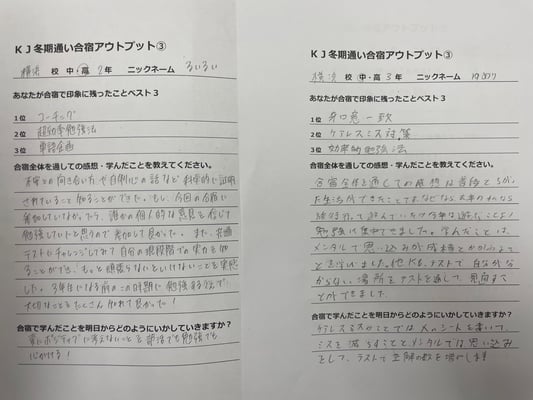 KJ冬期通い合宿アウトプット③
横浜 校 中・高 2年 ニックネーム るいるい
あなたが合宿で印象に残ったことベスト3
1位 コーチング
2位 超効率勉強法
3位 単語企画
合宿全体を通しての感想・学んだことを教えてください。
本質との向き合い方や自制心の話など科学的に証明
されていること知ることができた。もし、今回の合宿に
参加していなかったら、誰かの個人的な意見を信じて
勉強していたと思うので参加して良かった。また、共通
テストにチャレンジしてみて自分の現段階での実力を知
ることができ、もっと頑張らないといけないことを実感
した。3年生になる前のこの時期に勉強する上で
大切なことをたくさん知れて良かった!
合宿で学んだことを明日からどのようにいかしていきますか?
常にポジティブに考えないことを部活でも勉強でも
心がける!
KJ冬期通い合宿アウトプット③
横浜 校 中・高 3年 ニックネーム
あなたが合宿で印象に残ったことベスト3
1位
2位 ケアレスミス対策
3位 効率的勉強法
合宿全体を通しての感想・学んだことを教えてください。
合宿全体を通しての感想は普段とちがっ
た生活ができたことです。
勉強に集中できました。学んだことは、
メンタルで思い込みが成績とかかわるこ
と学びました。他にも、テストで自分が分
からない場所をテストを通して、見直すこ
とができました。
合宿で学んだことを明日からどのようにいかしていきますか?
ケアレスミスのことでは シートを書いて、
ミスを減らすことと、メンタルでは思い込み
をして、テストで正解の数を増やします